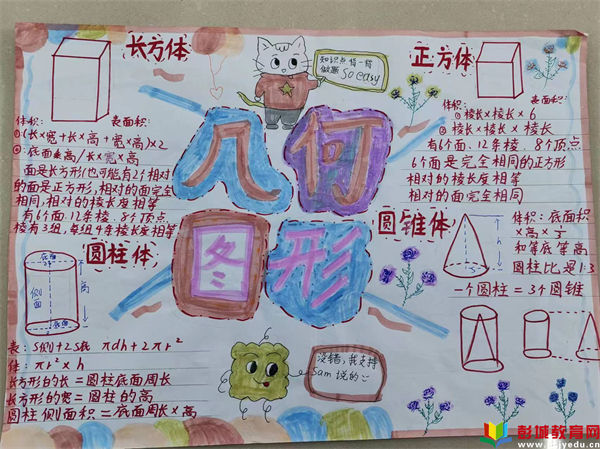 长方体
体积: 表面积:
①(长×宽+长×高+宽×高)×2
②:底面×高/长×宽×高
面是长方形(也可能有2个相对
的面是正方形,相对的面完全
相同,相对的棱长度相等
有6个面、12条棱、8个顶点
棱有3组,每组4条棱长度相等
知识点情一情
做题 So easy
几何
图形
正方体
体积: 表面积:
①棱长×棱长×6
②棱长×棱长×棱长
有6个面、12条棱、8个顶点
6个面是完全相同的正方形
相对的棱长度相等
相对的面完全相同
圆柱体
底面
侧面
高
底面
表:S侧+2S底 πdh+2πr²
体:πr²×h
长方形的长=圆柱底面周长
长方形的宽=圆柱的高
圆柱侧面积=底面周长×高
圆锥体
h
体积:底面积
×高×⅓
和等底等高
圆柱比是1:3
一个圆柱=3个圆锥
没错,我支持
Sam 说的
彭城教育网